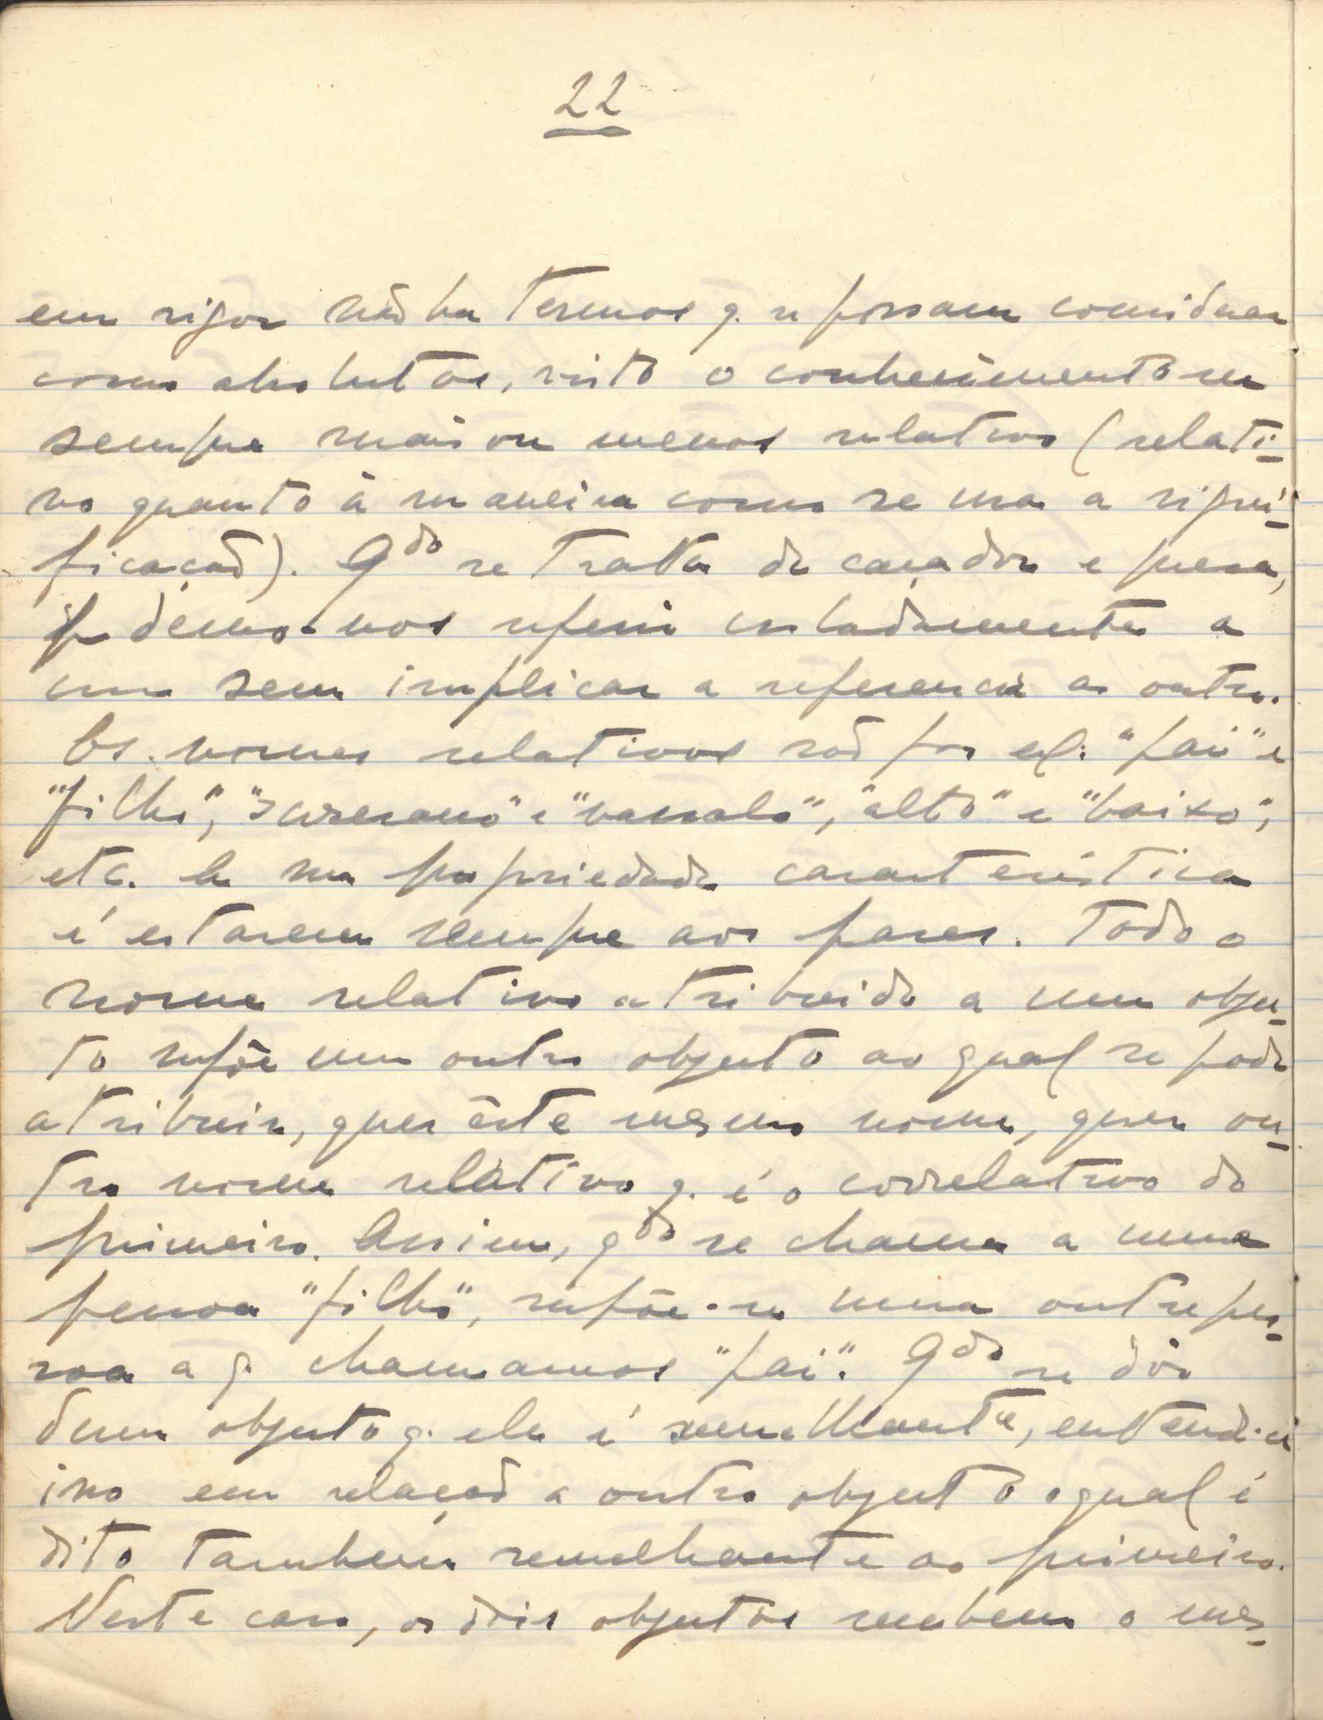 22
em rigor não ha termos q. se possam considerar
como absolutos, visto o conhecimento ser
sempre mais ou menos relativo (relati-
vo quanto à maneira como se usa a signi-
ficação). Qdo se trata de caçador e presa,
podemo-nos referir isoladamente a
um sem implicar a referencia ao outro.
Os nomes relativos são por ex: "pai" e
"filho", "suserano" e "vassalo", "alto" e "baixo",
etc. A sua propriedade caracteristica
é estarem sempre aos pares. Todo o
nome relativo atribuido a um objec-
to supõe um outro objecto ao qual se pode
atribuir, quer êste mesmo nome, quer ou-
tro nome relativo q. é o correlativo do
primeiro. Assim, qdo se chama a uma
pessoa "filho", supõe-se uma outra pes-
soa a q. chamamos "pai". Qdo se diz
dum objecto q. ele é semelhante, entende-se
isso em relação a outro objecto o qual é
dito tambem semelhante ao primeiro.
Neste caso, os dois objectos recebem o mes-